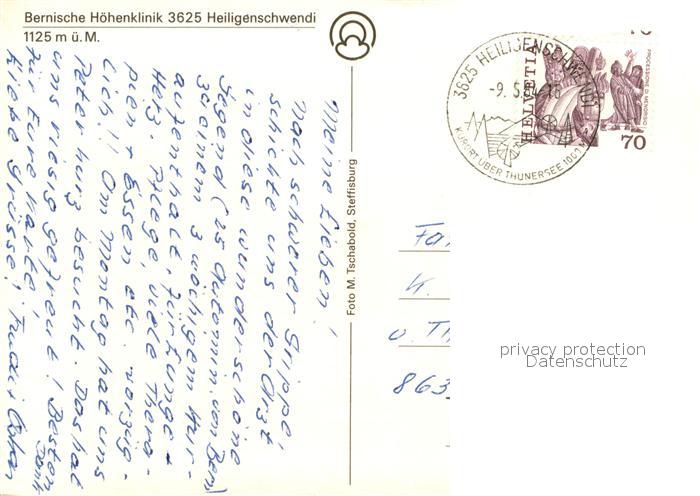 Bernische Höhenklinik 3625 Heiligenschwendi
1125 m ü. M.
Meine Lieben!
Nach schwerer Grippe,
schickte uns der Arzt
in diese wunderschöne
Gegend (25 Automin. von Bern)
zu einem 3 wöchigem Kur-
aufenthalt, für Lunge +
Herz. Pflege, viele Thera-
pien + Essen etc. vorzüg-
lich!! Am Montag hat uns
Peter kurz besucht. Das hat
uns riesig gefreut! Besten
Dank
für Eure Karte,
Liebe Grüsse! Trudi +
Foto M. Tschabold, Steffisburg
3625 HEILIGENSCHWENDI
-9. 5. 84-18
KURORT ÜBER THUNERSEE 1000 M
HELVETIA
PROCESSIONE DI MENDRISIO
70
Fa
K.
u. Th
863
privacy protection
Datenschutz